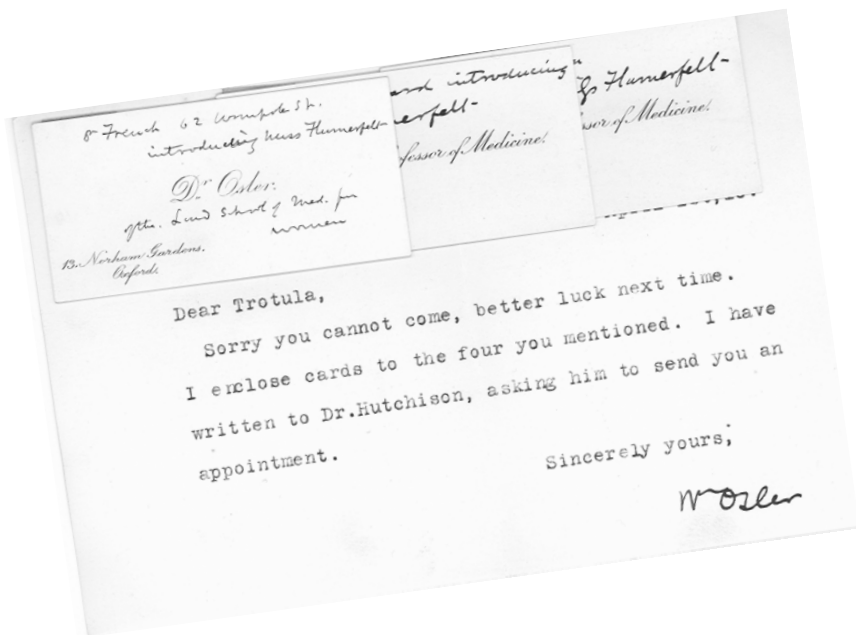 Dr French 62 Wimpole St.
introducing Miss Flumerfelt
Dr. Osler.
of the Lond School of Med. for
women
13. Norham Gardens.
Oxford.
and introducing
erfelt
fessor of Medicine.
Flumerfelt
ssor of Medicine.
Dear Trotula,
Sorry you cannot come, better luck next time.
I enclose cards to the four you mentioned. I have
written to Dr.Hutchison, asking him to send you an
appointment.
Sincerely yours,
Wm Osler